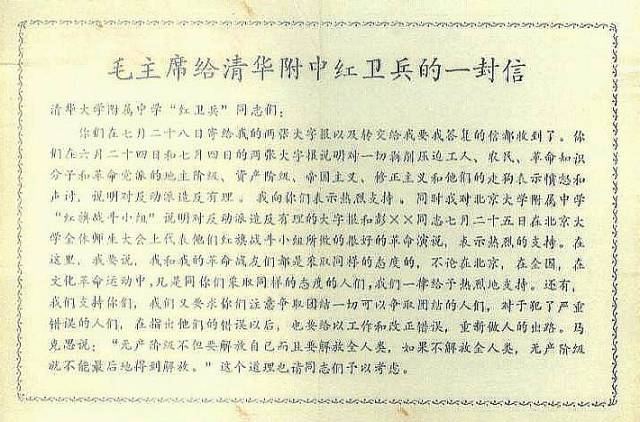 毛主席给清华附中红卫兵的一封信
清华大学附属中学“红卫兵”同志们：
你们在七月二十八日寄给我的两张大字报以及转交给我要我答复的信都收到了。你
们在六月二十四日和七月四日的两张大字报说明对一切剥削压迫工人、农民、革命知识
分子和革命党派的地主阶级、资产阶级、帝国主义、修正主义和他们的走狗表示愤怒和
声讨，说明对反动派造反有理。我向你们表示热烈支持。同时我对北京大学附属中学
“红旗战斗小组”说明对反动派造反有理的大字报和彭××同志七月二十五日在北京大
学全体师生大会上代表他们红旗战斗小组所做的很好的革命演说，表示热烈的支持。在
这里，我要说，我和我的革命战友们都是采取同样的态度的，不论在北京，在全国，在
文化革命运动中，凡是同你们采取同样的态度的人们，我们一律给予热烈地支持。还有，
我们支持你们，我们又要求你们注意争取团结一切可以争取团结的人们，对于犯了严重
错误的人们，在指出他们的错误以后，也要给以工作和改正错误，重新做人的出路。马
克思说：“无产阶级不但要解放自己而且要解放全人类，如果不解放全人类，无产阶级
就不能最后地得到解放。”这个道理也请同志们予以考虑。